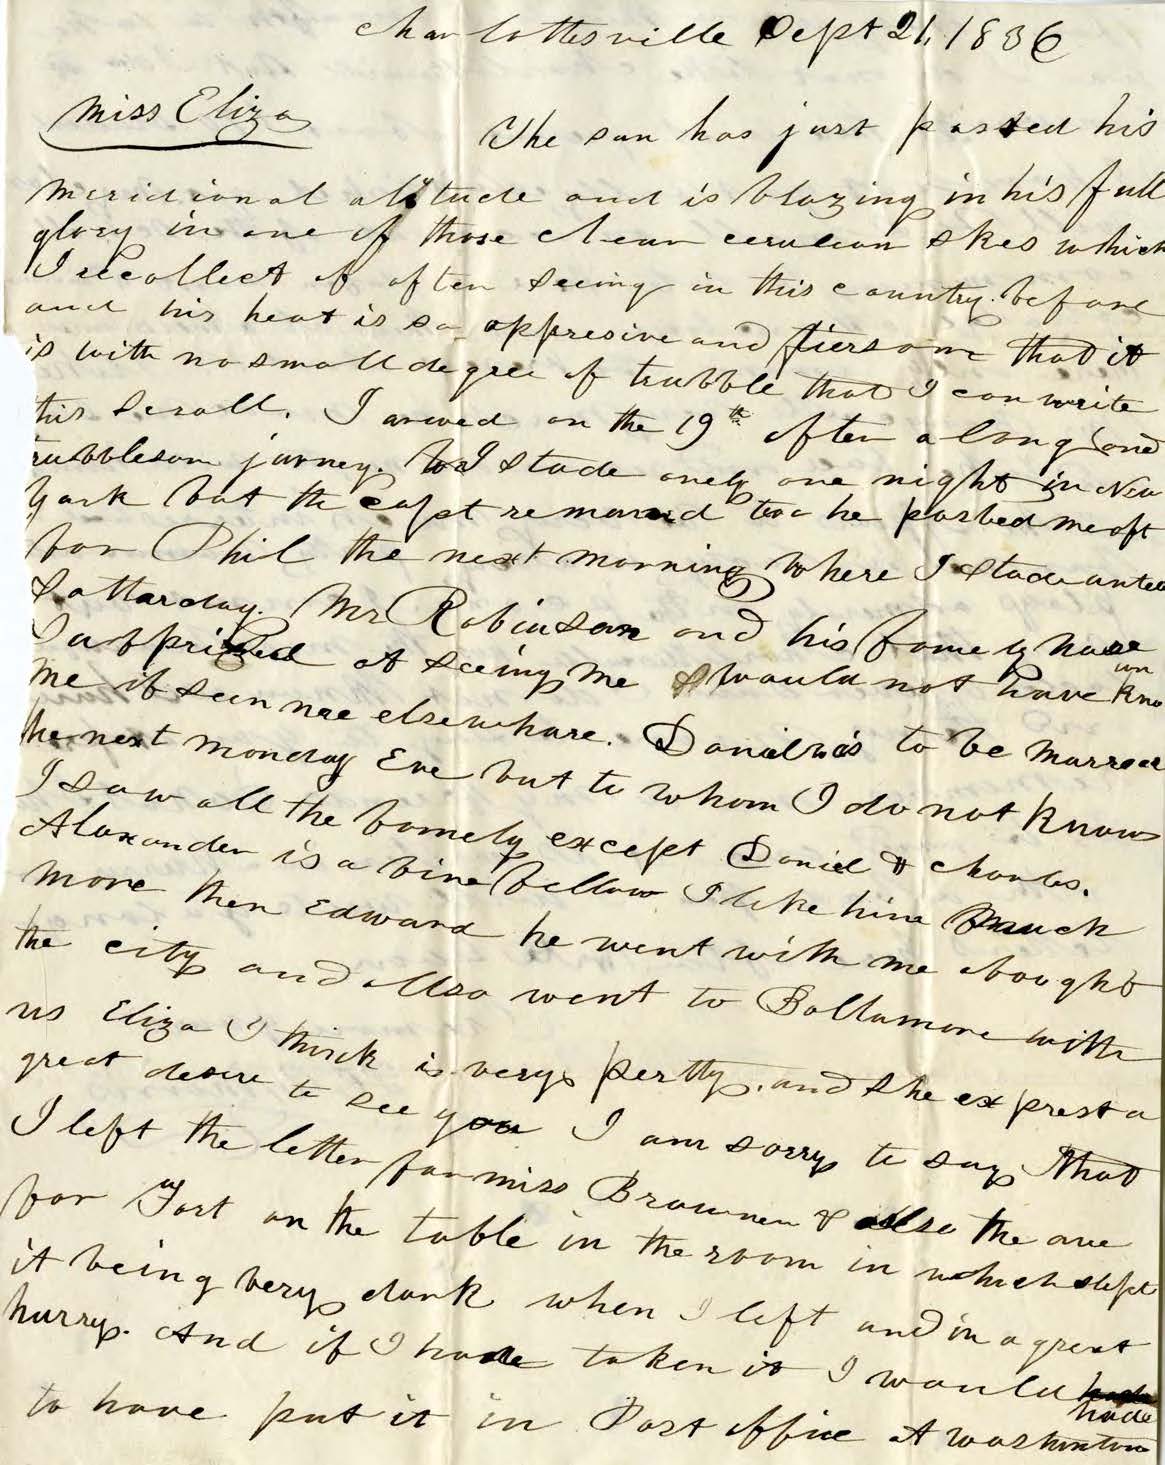 Charlottesville Sept 21, 1836
Miss Eliza
The sun has just passed his
meridional altitude and is blazing in his full
glory in one of those clear cerulean skes which
I recollect of often seeing in this country before
and his heat is so oppresive and fiersome that it
is with no small degree of trubble that I can write
this scrall. I arived on the 19th after a long and
trubblesom jurney. I stade onely one night in New
York but the capt remand too he parsed me oft
for Phil the next morning where I stade untee
Satterday. Mr Robinson and his famely ware
Surprized at seeing me I would not have kno
un
me if seen me elsewhare. Daniel was to be marread
the next monday Eve but to whom I do not know
I saw all the famely except Daniel & Charles.
Alaxander is a fine fellow I like him much
more then Edward he went with me abought
the city and allso went to Baltamore with
us Eliza I think is very pertty. and she exprest a
great desire to see you I am sorry to say that
I left the letter for miss Brownen & allso the one
for on the table in the room in which slept
it being very dark when I left and in a great
hurry. And if I hade taken it I would hade
to have put it in Post office at washinton